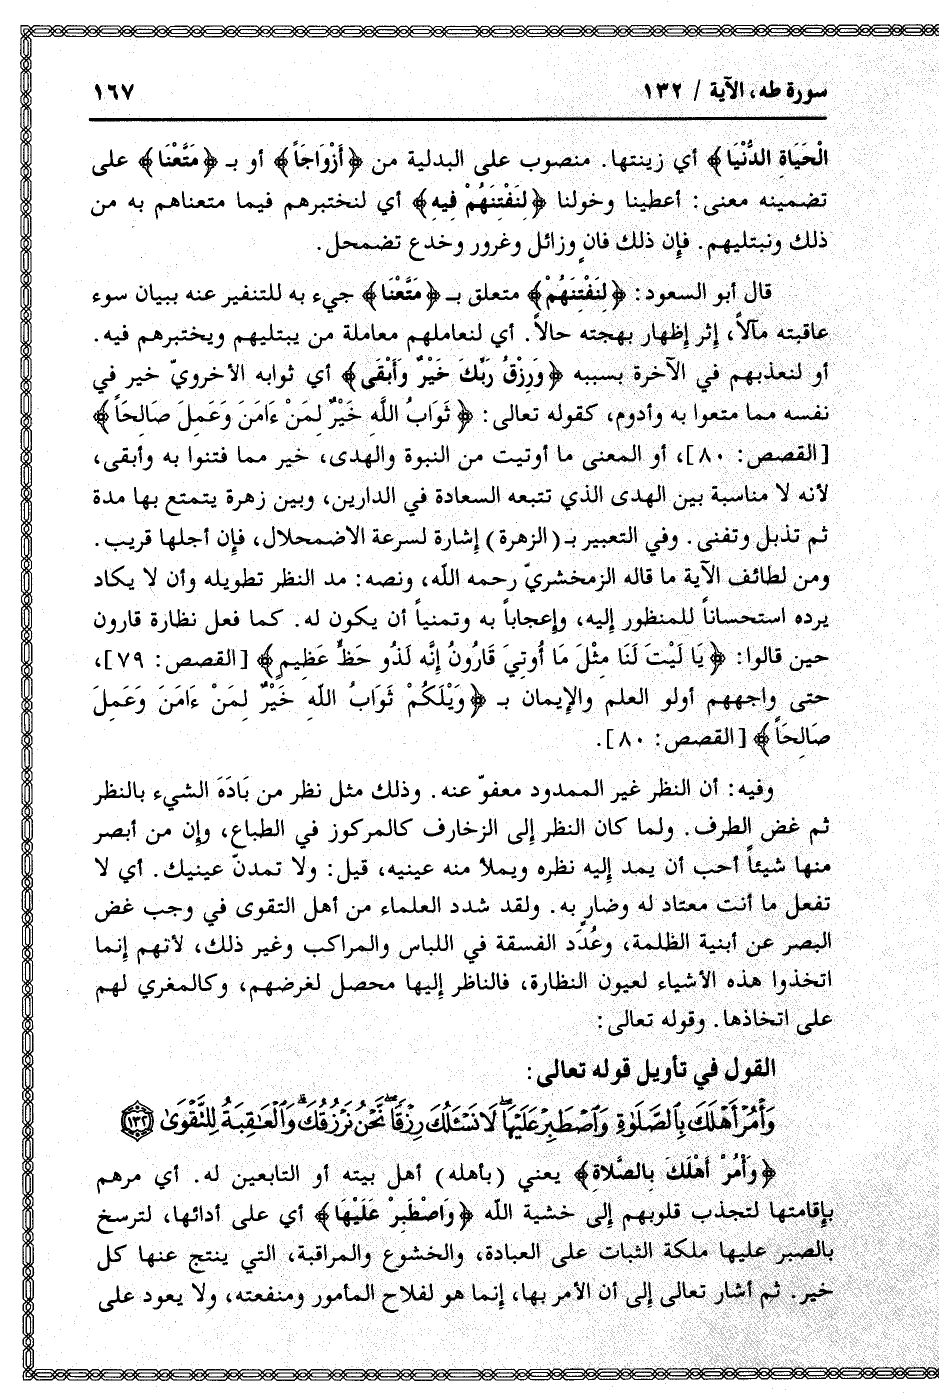 سورة طه، الآية / ١٣٢
١٦٧
الْحَيَاةِ الدُّنْيَا﴾ أي زينتها. منصوب على البدلية من ﴿أَزْوَاجَاً﴾ أو بـ ﴿مَتَّعْنَا﴾ على
تضمينه معنى: أعطينا وخولنا ﴿لِنَفْتِنَهُمْ فِيهِ﴾ أي لنختبرهم فيما متعناهم به من
ذلك ونبتليهم. فإن ذلك فانٍ وزائل وغرور وخدع تضمحل.
قال أبو السعود: ﴿لِنَفْتِنَهُمْ﴾ متعلق بـ ﴿مَتَّعْنَا﴾ جيء به للتنفير عنه ببيان سوء
عاقبته مآلاً، إثر إظهار بهجته حالاً. أي لنعاملهم معاملة من يبتليهم ويختبرهم فيه.
أو لنعذبهم في الآخرة بسببه ﴿وَرِزْقُ رَبِّكَ خَيْرٌ وأَبْقَى﴾ أي ثوابه الأخرويّ خير في
نفسه مما متعوا به وأدوم، كقوله تعالى: ﴿ثَوَابُ اللَّهِ خَيْرٌ لِمَنْ ءَامَنَ وَعَمِلَ صَالِحَاً﴾
[القصص: ٨٠]، أو المعنى ما أوتيت من النبوة والهدى، خير مما فتنوا به وأبقى،
لأنه لا مناسبة بين الهدى الذي تتبعه السعادة في الدارين، وبين زهرة يتمتع بها مدة
ثم تذبل وتفنى. وفي التعبير بـ (الزهرة) إشارة لسرعة الاضمحلال، فإن أجلها قريب.
ومن لطائف الآية ما قاله الزمخشريّ رحمه اللّه، ونصه: مد النظر تطويله وأن لا يكاد
يرده استحساناً للمنظور إليه، وإعجاباً به وتمنياً أن يكون له. كما فعل نظارة قارون
حين قالوا: ﴿يَا لَيْتَ لَنَا مِثْلَ مَا أُوتِيَ قَارُونُ إِنَّه لَذُو حَظٍّ عَظِيمٍ﴾ [القصص: ٧٩]،
حتى واجههم أولو العلم والإيمان بـ ﴿وَيْلَكُمْ ثَوَابُ اللَّهِ خَيْرٌ لِمَنْ ءَامَنَ وَعَمِلَ
صَالِحَاً﴾ [القصص: ٨٠].
وفيه: أن النظر غير الممدود معفوّ عنه. وذلك مثل نظر من بَادَهَ الشيء بالنظر
ثم غض الطرف. ولما كان النظر إلى الزخارف كالمركوز في الطباع، وإن من أبصر
منها شيئاً أحب أن يمد إليه نظره ويملأ منه عينيه، قيل: ولا تمدنّ عينيك. أي لا
تفعل ما أنت معتاد له وضارٍ به. ولقد شدد العلماء من أهل التقوى في وجب غض
البصر عن أبنية الظلمة، وعُدَد الفسقة في اللباس والمراكب وغير ذلك، لأنهم إنما
اتخذوا هذه الأشياء لعيون النظارة، فالناظر إليها محصل لغرضهم، وكالمغري لهم
على اتخاذها. وقوله تعالى:
القول في تأويل قوله تعالى:
وَأْمُرْ أَهْلَكَ بِالصَّلَوٰةِ وَاصْطَبِرْ عَلَيْهَا ۖ لَا نَسْـَٔلُكَ رِزْقًا ۖ نَّحْنُ نَرْزُقُكَ ۗ وَالْعَٰقِبَةُ لِلتَّقْوَىٰ ١٣٢
﴿وَأْمُرْ أَهْلَكَ بِالصَّلَاةِ﴾ يعني (بأهله) أهل بيته أو التابعين له. أي مرهم
بإقامتها لتجذب قلوبهم إلى خشية اللّه ﴿وَاصْطَبِرْ عَلَيْهَا﴾ أي على أدائها، لترسخ
بالصبر عليها ملكة الثبات على العبادة، والخشوع والمراقبة، التي ينتج عنها كل
خير. ثم أشار تعالى إلى أن الأمر بها، إنما هو لفلاح المأمور ومنفعته، ولا يعود على